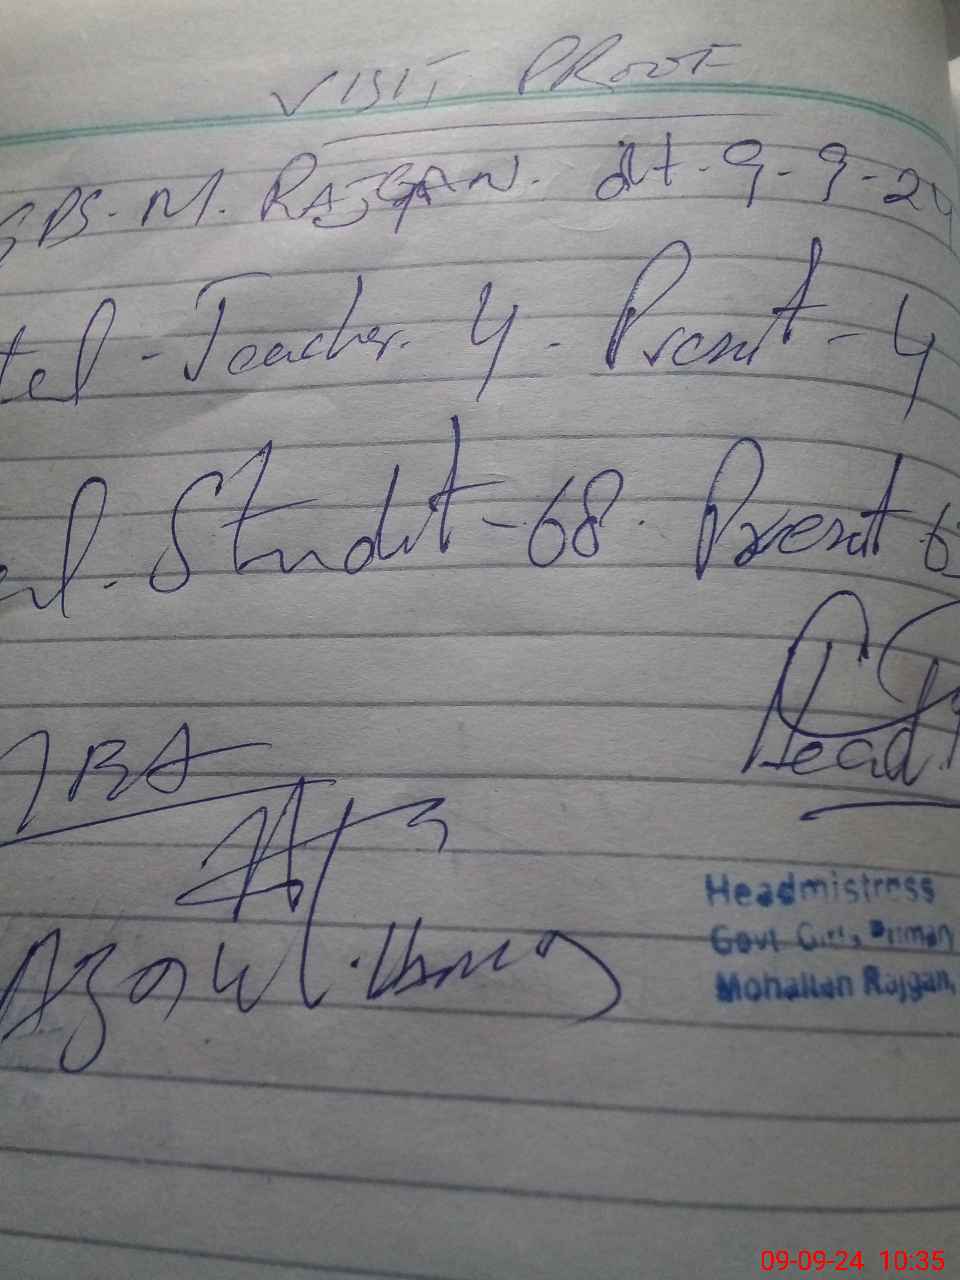 VISIT PROOF
GPS. M. RAJGAN. dt. 9-9-24
tel - Teacher. 4. Present - 4
al. Studnt - 68. Present 6
Head
IBA
Headmistress
Govt Girls Priman
Mohallah Rajgan,
09-09-24 10:35